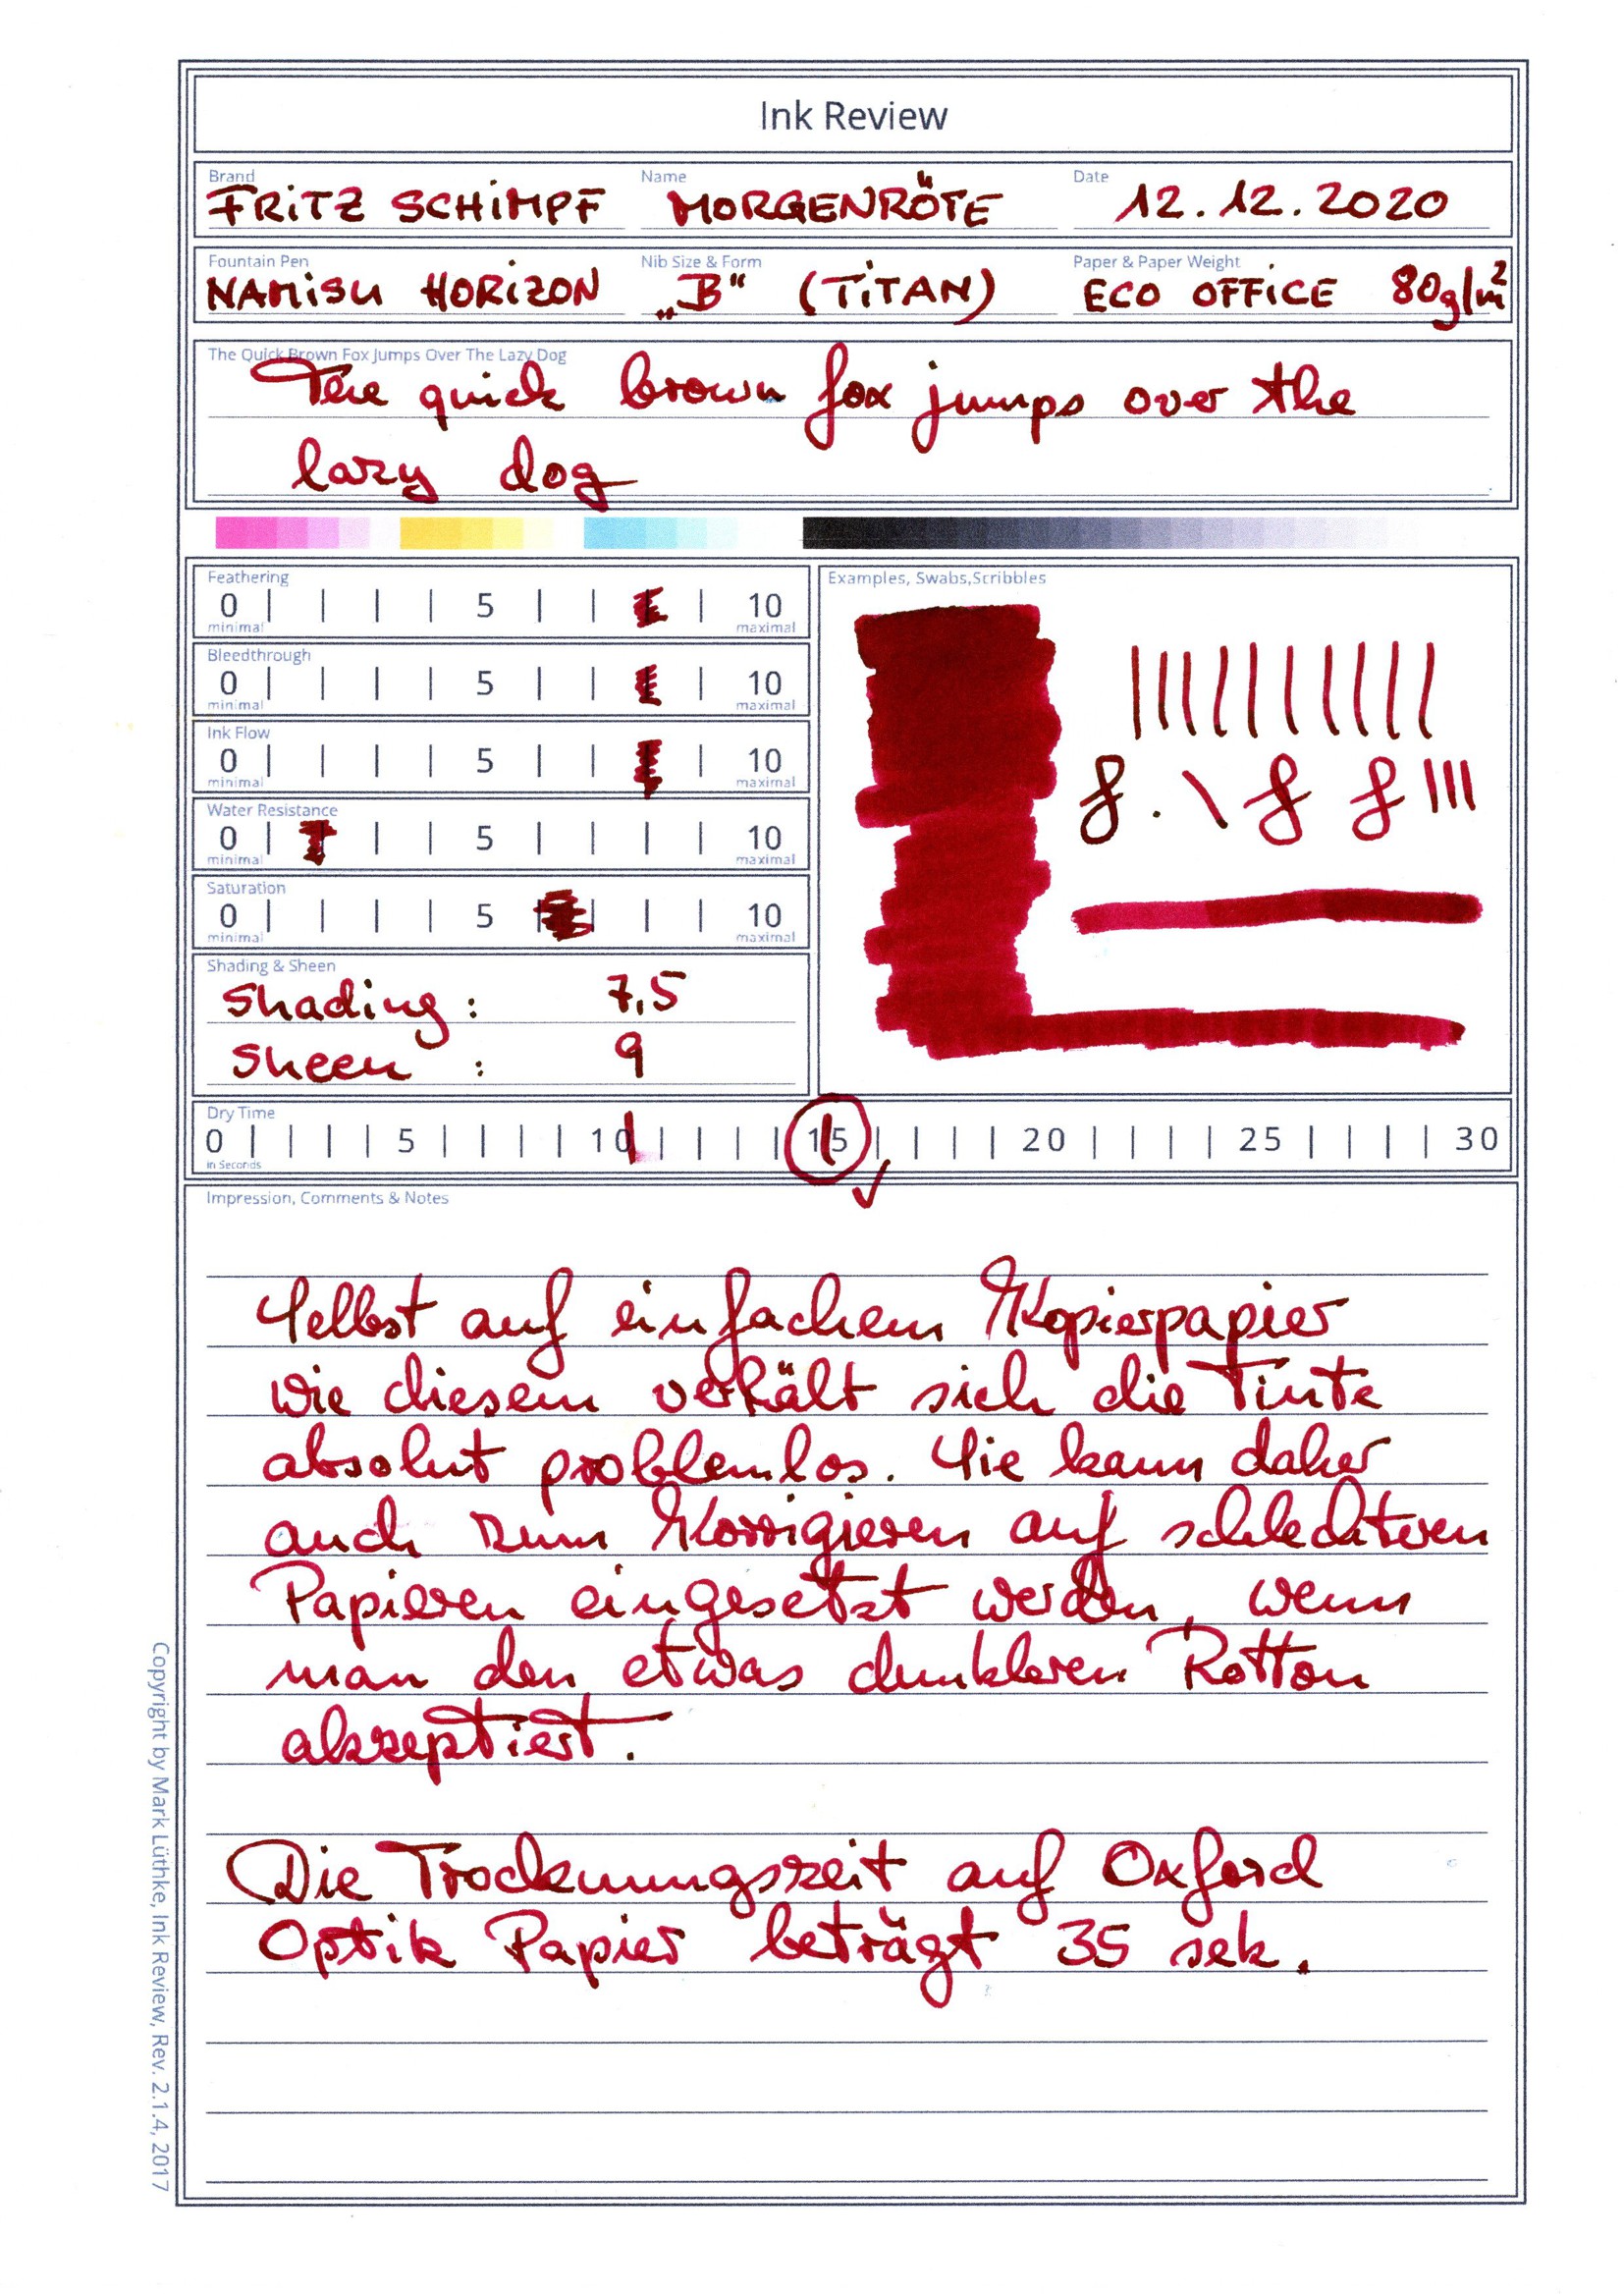 Ink Review
Brand
FRITZ SCHIMPF
Name
MORGENRÖTE
Date
12.12.2020
Fountain Pen
NAMISU HORIZON
Nib Size & Form
„B“ (TITAN)
Paper & Paper Weight
ECO OFFICE 80g/m²
The Quick Brown Fox Jumps Over The Lazy Dog
The quick brown fox jumps over the
lazy dog
Feathering
0 | | | | 5 | | | | 10
minimal maximal
Bleedthrough
0 | | | | 5 | | | | 10
minimal maximal
Ink Flow
0 | | | | 5 | | | | 10
minimal maximal
Water Resistance
0 | | | | 5 | | | | 10
minimal maximal
Saturation
0 | | | | 5 | | | | 10
minimal maximal
Shading & Sheen
Shading : 7,5
Sheen : 9
Examples, Swabs,Scribbles
Dry Time
0 | | | | 5 | | | | 10 | | | | 15 | | | | 20 | | | | 25 | | | | 30
in Seconds
Impression, Comments & Notes
Selbst auf einfachem Kopierpapier
wie diesem verhält sich die Tinte
absolut problemlos. Sie kann daher
auch zum Korrigieren auf schlechteren
Papieren eingesetzt werden, wenn
man den etwas dunkleren Rotton
akzeptiert.
Die Trocknungszeit auf Oxford
Optik Papier beträgt 35 sek.
Copyright by Mark Lüthke, Ink Review, Rev. 2.1.4, 2017